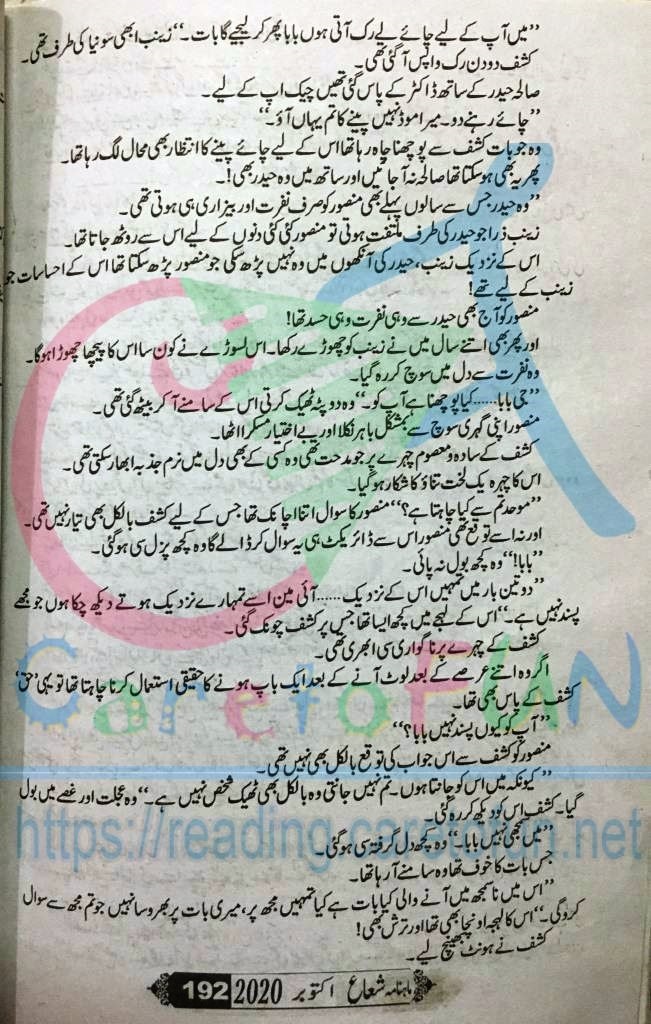 ’’میں آپ کے لیے چائے لے کر آتی ہوں بابا پھر کر لیجیے گا بات۔‘‘ زینب ابھی سونیا کی طرف تھی۔
کشف دو دن رک واپس آ گئی تھی۔
صالحہ حیدر کے ساتھ ڈاکٹر کے پاس گئی تھیں چیک اپ کے لیے۔
’’چائے رہنے دو۔ میرا موڈ نہیں پینے کا تم یہاں آؤ۔‘‘
وہ جو بات کشف سے پوچھنا چاہ رہا تھا اس کے لیے چائے پینے کا انتظار بھی محال لگ رہا تھا۔
پھر یہ بھی ہو سکتا تھا صالحہ نہ آ جائیں اور ساتھ میں وہ حیدر بھی!۔
’’وہ حیدر جس سے سالوں پہلے بھی منصور کو صرف نفرت اور بیزاری ہی ہوتی تھی۔
زینب ذرا جو حیدر کی طرف ملتفت ہوتی تو منصور کئی کئی دنوں کے لیے اس سے روٹھ جاتا تھا۔
اس کے نزدیک زینب، حیدر کی آنکھوں میں وہ نہیں پڑھ سکی جو منصور پڑھ سکتا تھا اس کے احساسات جو
زینب کے لیے تھے!
منصور کو آج بھی حیدر سے وہی نفرت وہی حسد تھا!
اور پھر بھی اتنے سال میں نے زینب کو چھوڑے رکھا۔ اس لسوڑے نے کون سا اس کا پیچھا چھوڑا ہوگا۔
وہ نفرت سے دل میں سوچ کر رہ گیا۔
’’جی بابا......کیا پوچھنا ہے آپ کو۔‘‘ وہ دوپٹہ ٹھیک کرتی اس کے سامنے آ کر بیٹھ گئی تھی۔
منصور اپنی گہری سوچ سے بمشکل باہر نکلا اور بے اختیار مسکرا اٹھا۔
کشف کے سادہ و معصوم چہرے پر جو مدحت تھی وہ کسی کے بھی دل میں نرم جذبہ ابھار سکتی تھی۔
اس کا چہرہ یک لخت تناؤ کا شکار ہو گیا۔
’’موحد تم سے کیا چاہتا ہے؟‘‘ منصور کا سوال اتنا اچانک تھا جس کے لیے کشف بالکل بھی تیار نہیں تھی۔
اور نہ اسے توقع تھی منصور اس سے ڈائریکٹ ہی یہ سوال کر ڈالے گا وہ کچھ پزل سی ہو گئی۔
’’بابا!‘‘ وہ کچھ بول نہ پائی۔
’’دو تین بار میں تمہیں اس کے نزدیک......آئی مین اسے تمہارے نزدیک ہوتے دیکھ چکا ہوں جو مجھے
پسند نہیں ہے۔‘‘ اس کے لہجے میں کچھ ایسا تھا جس پر کشف چونک گئی۔
کشف کے چہرے پر ناگواری سی ابھری تھی۔
اگر وہ اتنے عرصے کے بعد لوٹ آنے کے بعد ایک باپ ہونے کا حق ہی استعمال کرنا چاہتا تھا تو یہی ’حق‘
کشف کے پاس بھی تھا۔
’’آپ کو کیوں پسند نہیں بابا؟‘‘
منصور کو کشف سے اس جواب کی توقع بالکل بھی نہیں تھی۔
’’کیونکہ میں اس کو جانتا ہوں۔ تم نہیں جانتی وہ بالکل بھی ٹھیک شخص نہیں ہے۔‘‘ وہ عجلت اور غصے میں بول
گیا۔ کشف اس کو دیکھ کر رہ گئی۔
’’میں سمجھی نہیں بابا۔‘‘ وہ کچھ دل گرفتہ سی ہو گئی۔
جس بات کا خوف تھا وہ سامنے آ رہا تھا۔
’’اس میں نا سمجھ میں آنے والی کیا بات ہے کیا تمہیں مجھ پر، میری بات پر بھروسا نہیں جو تم مجھ سے سوال
کرو گی۔‘‘ اس کا لہجہ اونچا بھی تھا اور ترش بھی!
کشف نے ہونٹ بھینچ لیے۔
ماہنامہ شعاع اکتوبر 2020 192
CaretoFUN
https://reading.caretofun.net